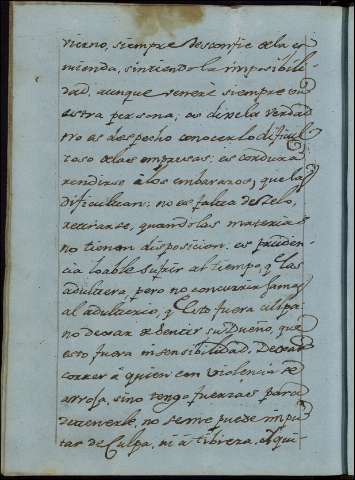 vierno, siempre desconfie de la en
mienda, sintiendo la imposibili
dad, aunque venere siempre vu
estra persona; os dixe la verdad
no es despecho conocer lo dificul
toso de las empresas; es cordura
rendirse à los embarazos, que la
dificultan: no es falta de zelo,
retirarse, quando las materias
no tienen disposicion. es pruden-
cia loable sufrir al tiempo, q las
adultera pero no concurrir jamas
al adulterio, q Esto fuera culpa
no dexar de sentir su Dueño, que
esto fuera insensibilidad. Dexar
correr à quien con violencia se
arroja, sino tengo fuerzas para
detenerle, no se me puede impu
tar de Culpa, ni à tibieza, el qui-